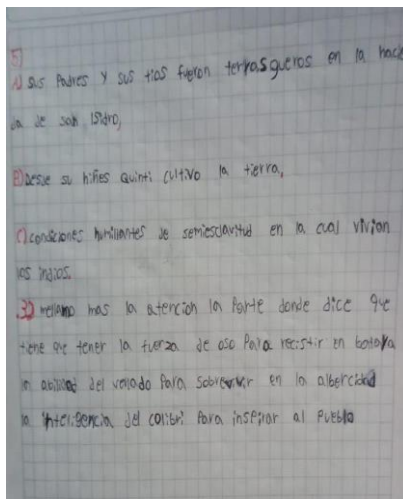 5)
A) sus Padres y sus tios fueron terrasgueros en la hacie
da de san Isidro,
B) Desde su niñes Quinti cultivo la tierra,
C) consdiciones humillantes de semiesclavitud en la cual vivian
los indios.
3) mellamo mas la atencion la Parte donde dice que
tiene que tener la fuerza de oso Para recistir en
la abilidad del venado Para sobrevivir en la
la inteligencia del colibri Para inspirar al Pueblo